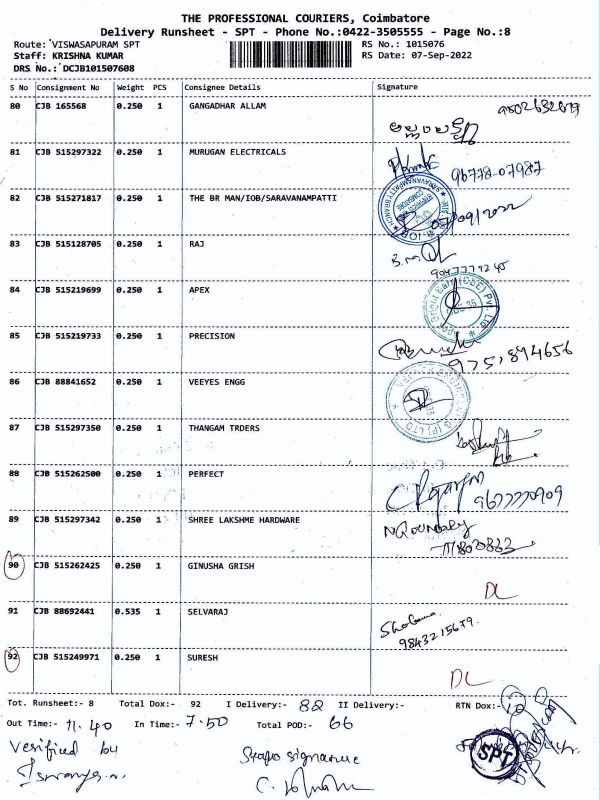 THE PROFESSIONAL COURIERS, Coimbatore
Delivery Runsheet - SPT - Phone No.:0422-3505555 - Page No.:8
Route: VISWASAPURAM SPT RS No.: 1015076
Staff: KRISHNA KUMAR RS Date: 07-Sep-2022
DRS No.: DCJB101507608
S No Consignment No Weight PCS Consignee Details Signature
80 CJB 165568 0.250 1 GANGADHAR ALLAM
81 CJB 515297322 0.250 1 MURUGAN ELECTRICALS 96778-07987
82 CJB 515271817 0.250 1 THE BR MAN/IOB/SARAVANAMPATTI
83 CJB 515128705 0.250 1 RAJ
84 CJB 515219699 0.250 1 APEX
85 CJB 515219733 0.250 1 PRECISION
86 CJB 88841652 0.250 1 VEEYES ENGG
87 CJB 515297350 0.250 1 THANGAM TRDERS
88 CJB 515262500 0.250 1 PERFECT
89 CJB 515297342 0.250 1 SHREE LAKSHME HARDWARE
90 CJB 515262425 0.250 1 GINUSHA GRISH DL
91 CJB 88692441 0.535 1 SELVARAJ
92 CJB 515249971 0.250 1 SURESH DL
Tot. Runsheet:- 8 Total Dox:- 92 I Delivery:- 82 II Delivery:- RTN Dox:- 10
Out Time:- 11.40 In Time:- 7.50 Total POD:- 66
Verified by
Staff signature
SPT